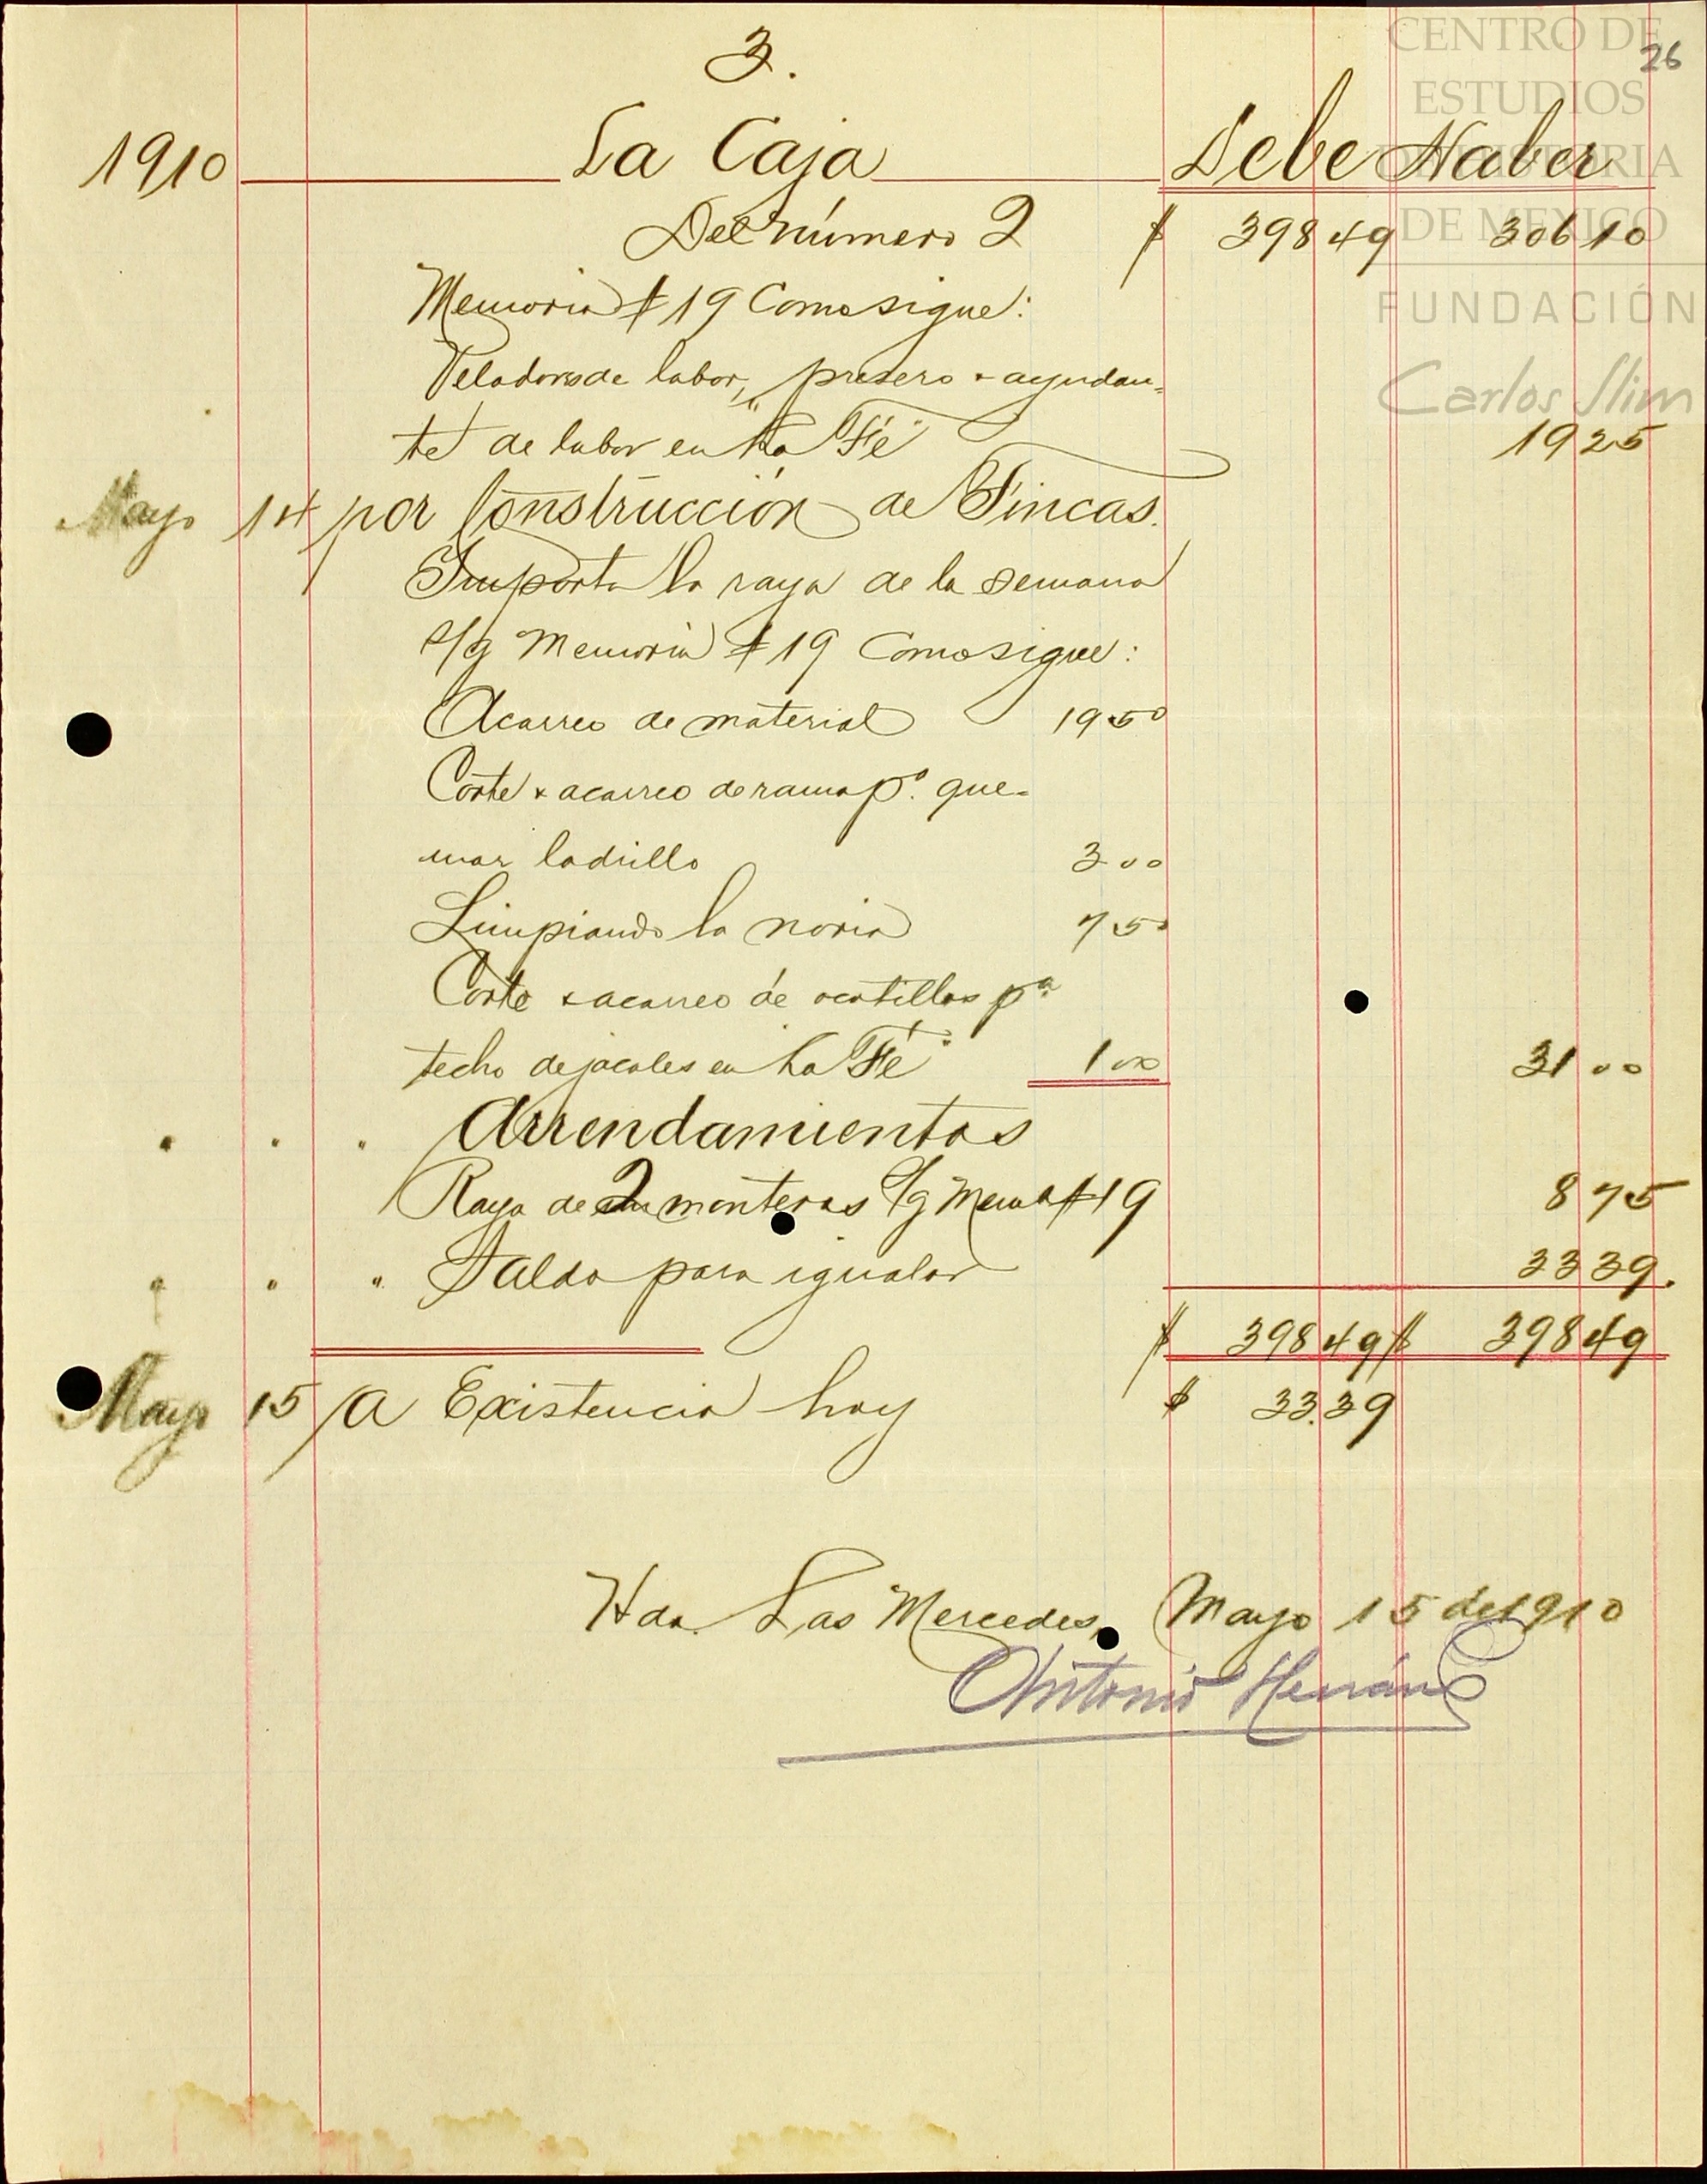 3.
26
1910 La Caja Debe Haber
Del número 2 $ 398 49 306 10
Memoria # 19 Como sigue:
Veladores de labor, presero & ayudan=
te de labor en "La Fé" 19 25
Mayo 14 por Construcción de Fincas.
Importa la raya de la semana
s/g Memoria # 19 Como sigue:
Acarreo de material 19 50
Corte & acarreo de rama pa. que-
mar ladrillo 3 00
Limpiando la noria 7 50
Corte & acarreo de ocotillos pa.
techo de jacales en "La Fé" 1 00 31 00
" " " Arrendamientos
Raya de 2 monteros s/g Mema # 19 8 75
" " " Saldo para igualar 33 39.
$ 398 49 $ 398 49
Mayo 15 a Existencia hoy $ 33.39
Hda. Las Mercedes, Mayo 15 de 1910
Antonio Hernán
CENTRO DE
ESTUDIOS
DE HISTORIA
DE MEXICO
FUNDACIÓN
Carlos Slim